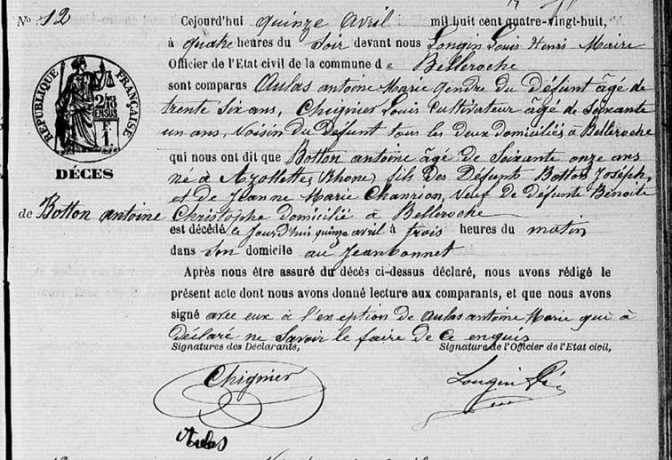 N° 12
Cejourd'hui quinze avril mil huit cent quatre-vingt-huit,
à quatre heures du Soir devant nous Longin Louis Henri Maire
Officier de l'Etat civil de la commune de Belleroche
sont comparus Aulas antoine Marie gendre du Défunt âgé de
trente Six ans, Chignier Louis Cultivateur âgé de Soixante
un ans, Voisin du Défunt tous les deux domiciliés à Belleroche
qui nous ont dit que Botton antoine âgé de Soixante onze ans
né à Azollette, (Rhone) fils des Défunts Botton Joseph,
et de Jeanne Marie Chanrion, Veuf de défunte Benoite
Christophe domicilié à Belleroche
est décédé le Jourd'hui quinze avril à trois heures du matin
dans Son domicile au Jeanbonnet
Après nous être assuré du décès ci-dessus déclaré, nous avons rédigé le
présent acte dont nous avons donné lecture aux comparants, et que nous avons
signé avec eux à l'exception de Aulas antoine Marie qui à
déclaré ne Savoir le faire de Ce enquis
Signatures des Déclarants,
Signature de l'Officier de l'Etat civil,
Chignier
Longin
Aulas
RÉPUBLIQUE FRANÇAISE
DÉCES
de Botton antoine